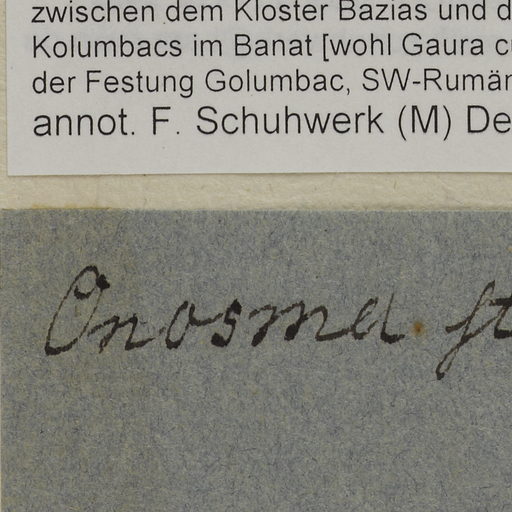 zwischen dem Kloster Bazias und d
Kolumbacs im Banat [wohl Gaura c
der Festung Golumbac, SW-Rumän
annot. F. Schuhwerk (M) De
Onosma st